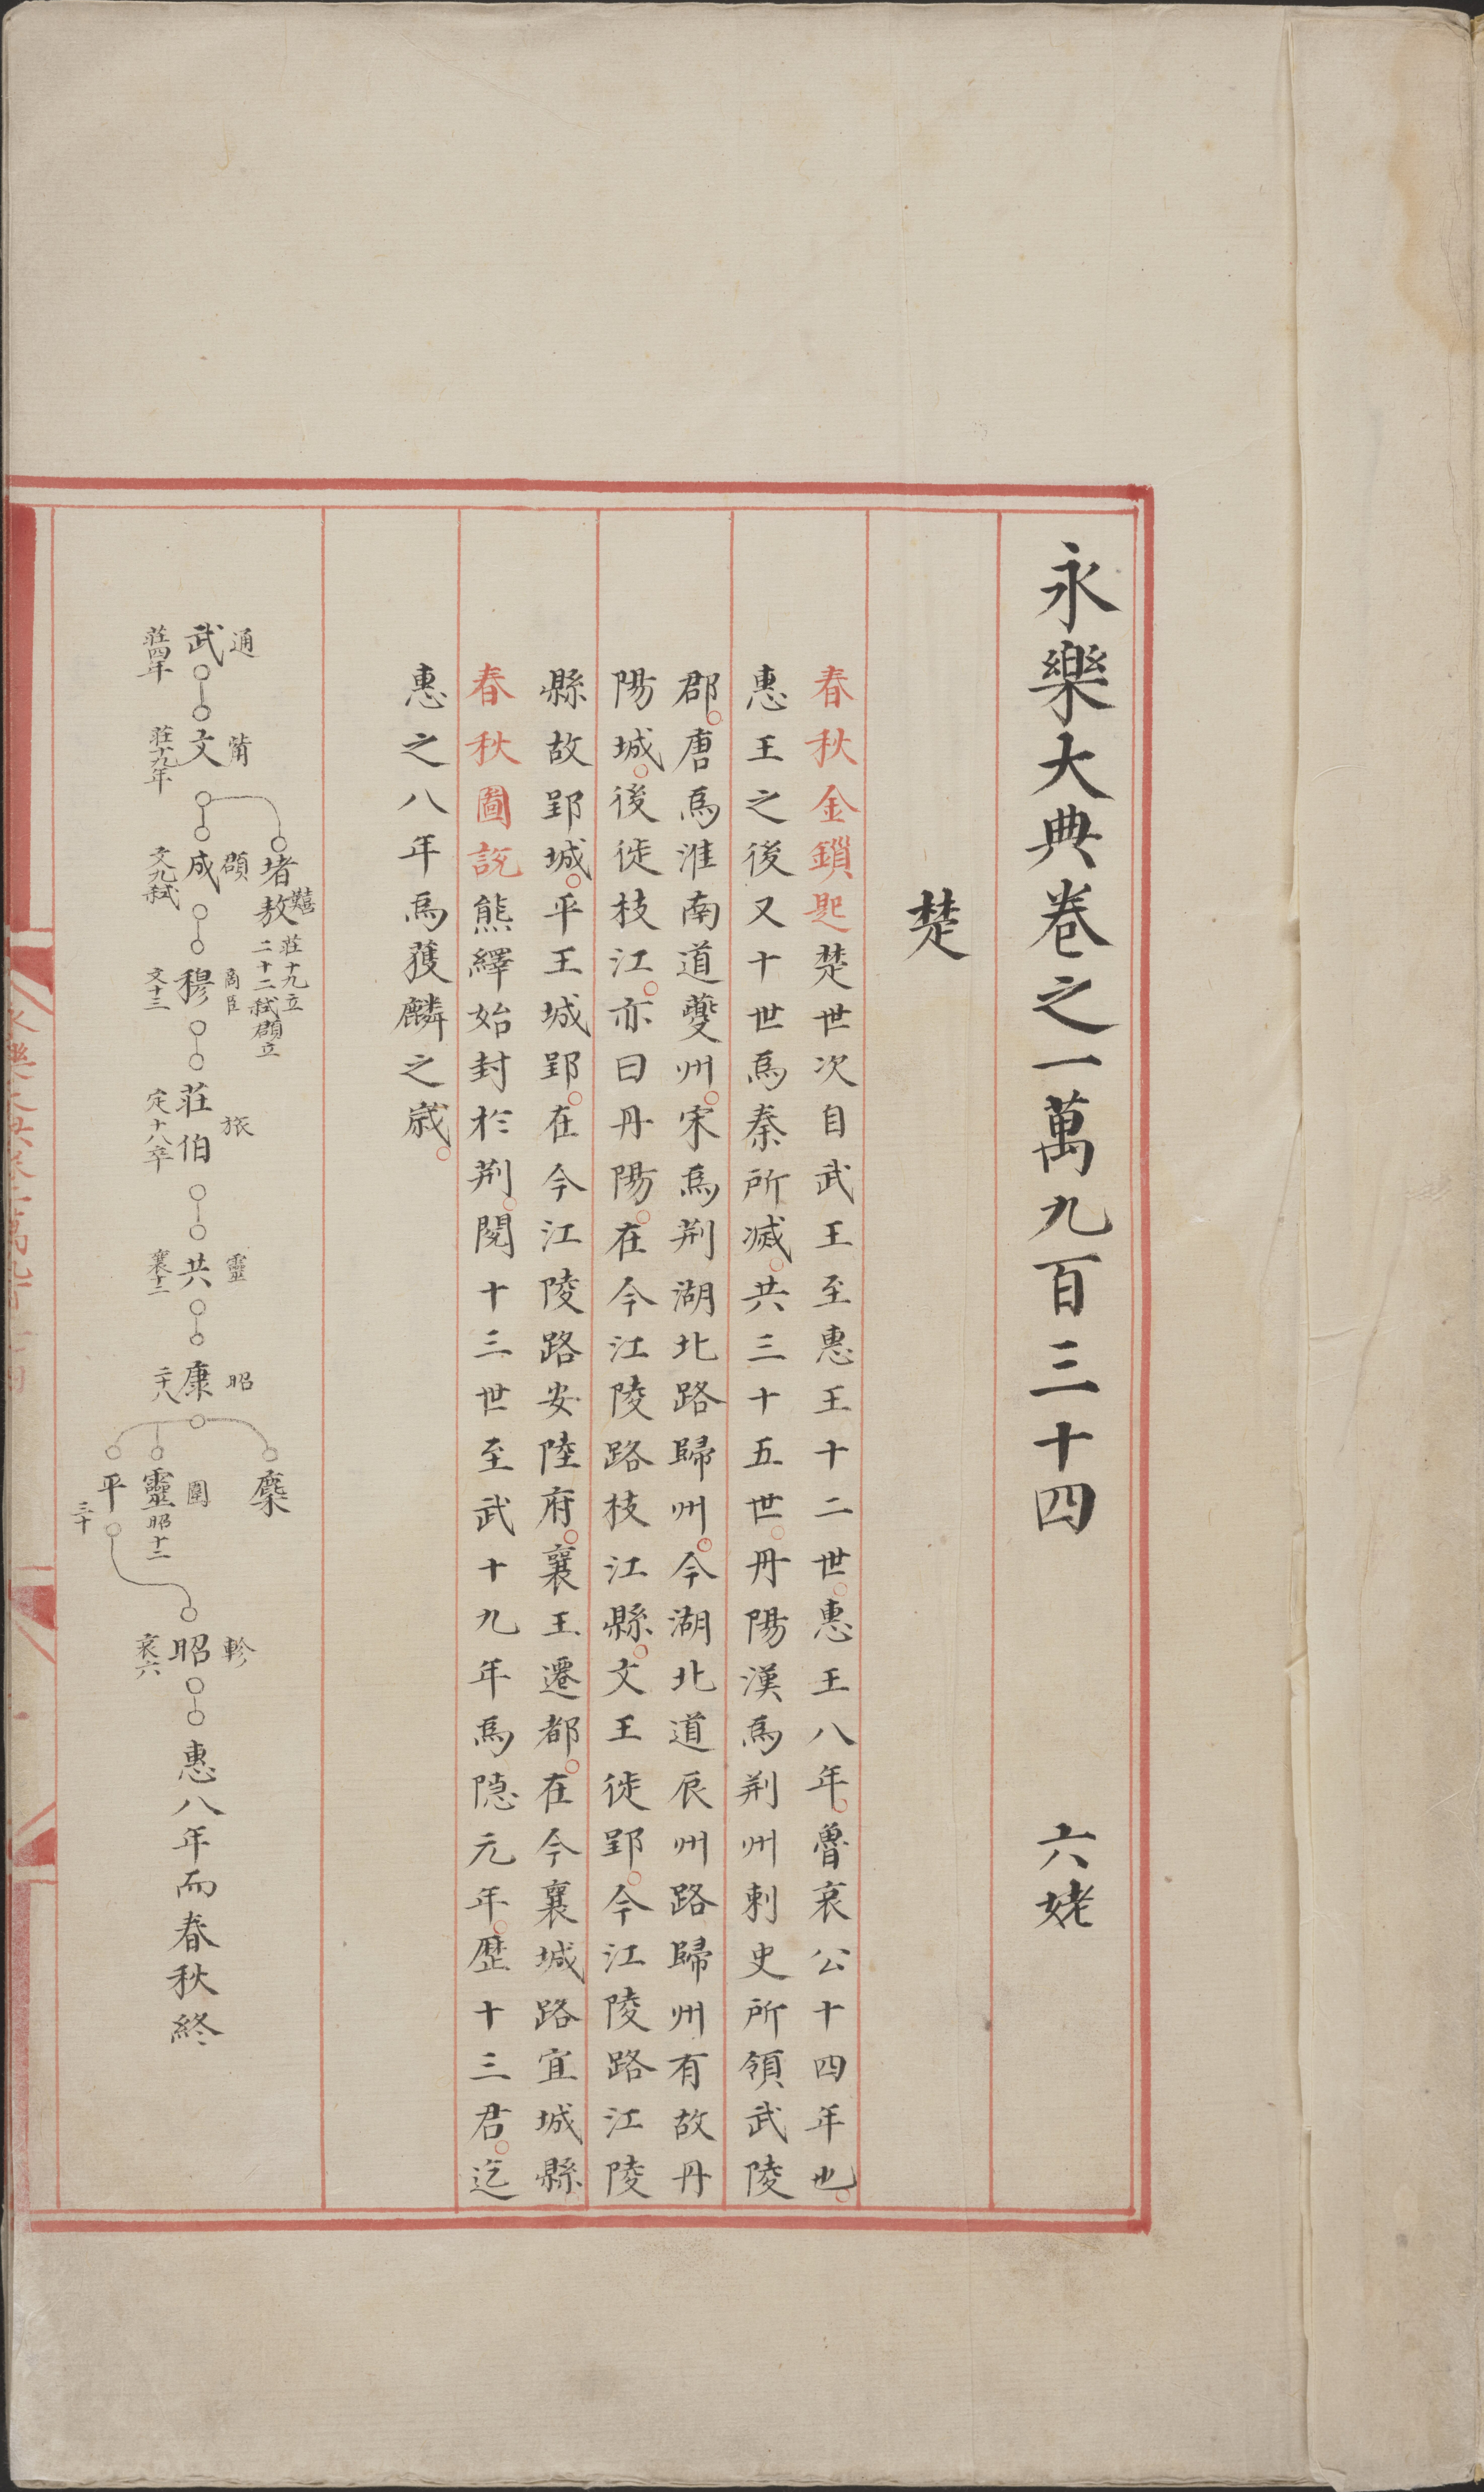 永樂大典卷之一萬九百三十四 六姥
楚
春秋金鎖匙楚世次自武王至惠王十二世惠王八年魯哀公十四年也
惠王之後又十世爲秦所滅共三十五世丹陽漢爲荆州刺史所領武陵
郡唐爲淮南道夔州宋爲荆湖北路歸州今湖北道辰州路歸州有故丹
陽城後徙枝江亦曰丹陽在今江陵路枝江縣文王徙郢今江陵路江陵
縣故郢城平王城郢在今江陵路安陸府襄王遷都在今襄城路宜城縣
春秋圖說熊繹始封於荆閱十三世至武十九年爲隱元年歷十三君迄
惠之八年爲獲麟之歲
通
武
莊四年
文
莊十九年
堵敖
囏
莊十九立
二十二弑頵立
頵
成
文九弑
商臣
穆
文十三
旅
莊伯
定十八卒
靈
共
襄十二
昭
康
二十八
麇
圍
靈
昭十二
平
三十
軫
昭
哀六
惠八年而春秋終